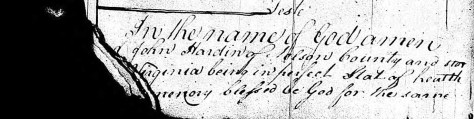 Teste
In the name of God amen
John Hardin of Nelson County and
Virginia being in perfect Stat of health
memory blessed be God for the same